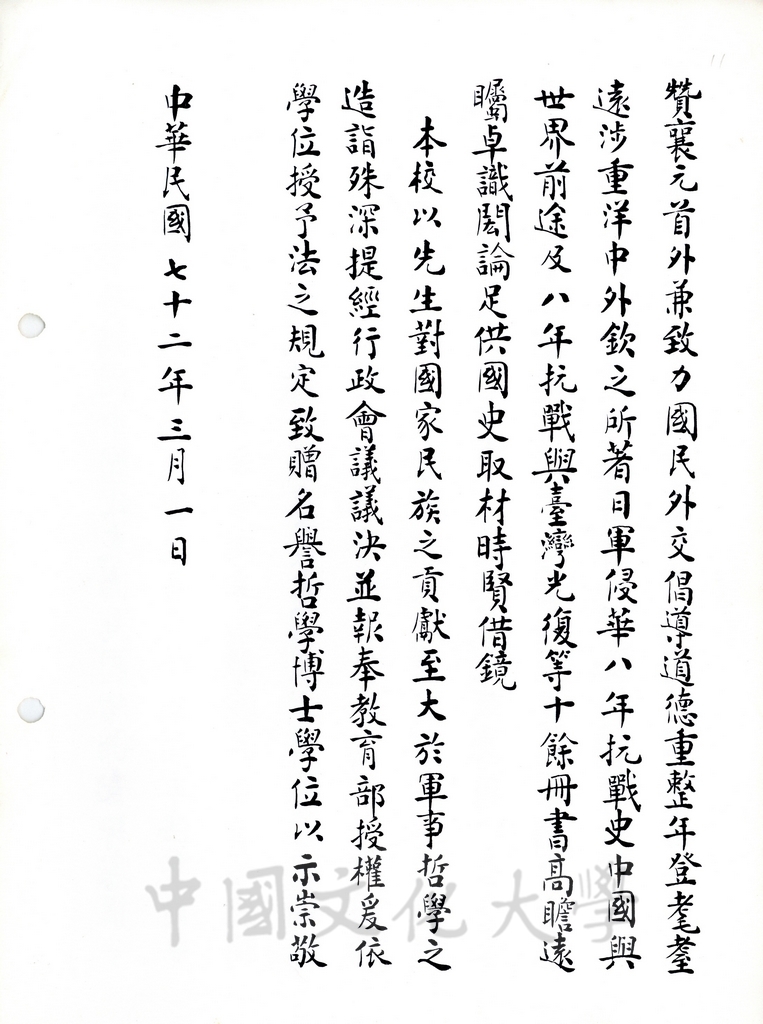 11
贊襄元首外兼致力國民外交倡導道德重整年登耄耋
遠涉重洋中外欽之所著日軍侵華八年抗戰史中國與
世界前途及八年抗戰與臺灣光復等十餘冊書高瞻遠
矚卓識閎論足供國史取材時賢借鏡
本校以先生對國家民族之貢獻至大於軍事哲學之
造詣殊深提經行政會議議決並報奉教育部授權爰依
學位授予法之規定致贈名譽哲學博士學位以示崇敬
中華民國七十二年三月一日
中國文化大學